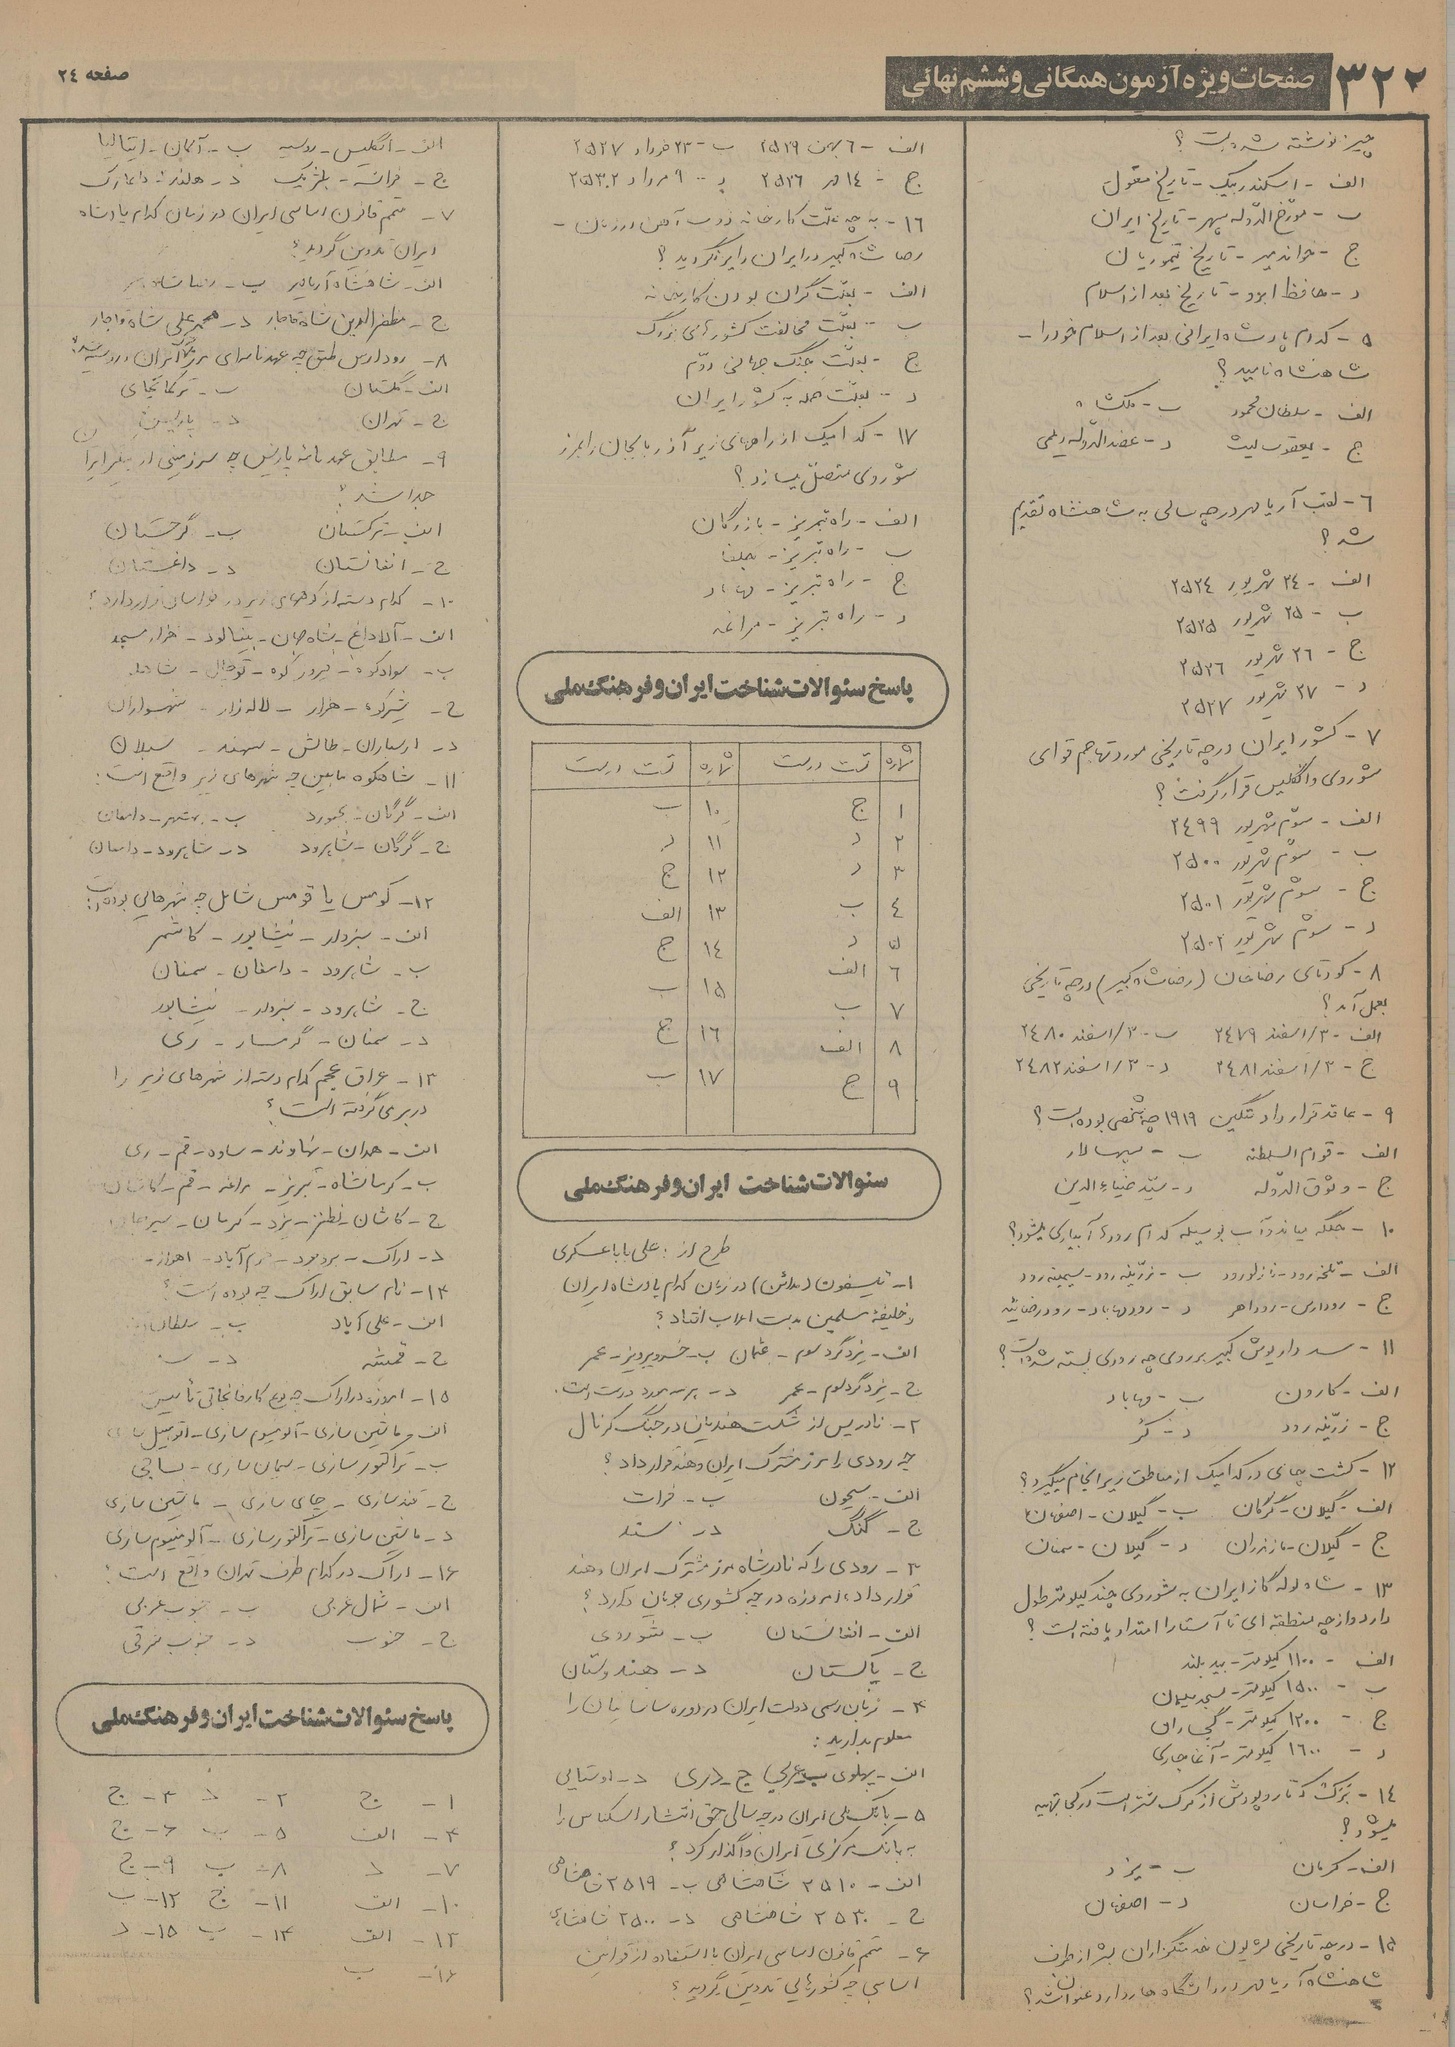 ۳۲۲
صفحات ویژه آزمون همگانی وششم نهائی
صفحه ۲۴
چیز نوشته شده است ؟
الف - اسکندر بیک - تاریخ مغول
ب - مورّخ الدّوله سپهر - تاریخ ایران
ج - خواندمیر - تاریخ تیموریان
د - حافظ ابرو - تاریخ بعد از اسلام
۵ - کدام پادشاه ایرانی بعد از اسلام خود را -
شاهنشاه نامید ؟
الف - سلطان محمود ب - ملکشاه
ج - یعقوب لیث د - عضدالدّوله دیلمی
۶ - لقب آریامهر در چه سالی به شاهنشاه تقدیم
شد ؟
الف - ۲۴ شهریور ۲۵۲۴
ب - ۲۵ شهریور ۲۵۲۵
ج - ۲۶ شهریور ۲۵۲۶
د - ۲۷ شهریور ۲۵۲۷
۷ - کشور ایران در چه تاریخی مورد تهاجم قوای
شوروی و انگلیس قرار گرفت ؟
الف - سوّم شهریور ۲۴۹۹
ب - سوّم شهریور ۲۵۰۰
ج - سوّم شهریور ۲۵۰۱
د - سوّم شهریور ۲۵۰۲
۸ - کودتای رضاخان (رضاشاه کبیر) در چه تاریخی
بعمل آمد ؟
الف - ۳/ اسفند ۲۴۷۹ ب - ۳/ اسفند ۲۴۸۰
ج - ۳/ اسفند ۲۴۸۱ د - ۳/ اسفند ۲۴۸۲
۹ - عاقد قرارداد ننگین ۱۹۱۹ چه شخصی بوده است ؟
الف - قوام السلطنه ب - سپهسالار
ج - وثوق الدّوله د - سیّد ضیاءالدین
۱۰ - جلگه میاندوآب بوسیله کدام رودها آبیاری میشود ؟
الف - تلخه رود - قزل اوزن ب - زرّینه رود - سیمینه رود
ج - رودارس - رود اهر د - رود مهاباد - رود رضائیه
۱۱ - سد داریوش کبیر بر روی چه رودی بسته شده است ؟
الف - کارون ب - مهاباد
ج - زرّینه رود د - کُر
۱۲ - کشت چای در کدامیک از مناطق زیر انجام میگیرد ؟
الف - گیلان - گرگان ب - گیلان - اصفهان
ج - گیلان - مازندران د - گیلان - سمنان
۱۳ - شاه لوله گاز ایران به شوروی چند کیلومتر طول
دارد و از چه منطقه ای تا آستارا امتداد یافته است ؟
الف - ۱۱۰۰ کیلومتر - بید بلند
ب - ۱۵۰۰ کیلومتر - مسجد سلیمان
ج - ۱۲۰۰ کیلومتر - گچساران
د - ۱۶۰۰ کیلومتر - آغاجاری
۱۴ - بَرَک که تاروپودش از کرک شتر است در کجا تهیه
میشود ؟
الف - کرمان ب - یزد
ج - خراسان د - اصفهان
۱۵ - در چه تاریخی لژیون خدمتگزاران بشر از طرف
شاهنشاه آریامهر در دانشگاه هاروارد عنوان شد ؟
الف - ۶ بهمن ۲۵۱۹ ب - ۲۳ خرداد ۲۵۲۷
ج - ۱۴ مهر ۲۵۲۶ د - ۹ مرداد ۲۵۳۰
۱۶ - به چه علّت کارخانه ذوب آهن در زمان -
رضا شاه کبیر در ایران دایر نگردید ؟
الف - بعلّت گران بودن کارخانه
ب - بعلّت مخالفت کشورهای بزرگ
ج - بعلّت جنگ جهانی دوّم
د - بعلّت حمله به کشور ایران
۱۷ - کدامیک از راههای زیر آذربایجان را بمرز
شوروی متصل میسازد ؟
الف - راه تبریز - بازرگان
ب - راه تبریز - جلفا
ج - راه تبریز - مهاباد
د - راه تبریز - مراغه
پاسخ سئوالات شناخت ایران و فرهنگ ملی
شماره قسمت درست شماره قسمت درست
۱ ج ۱۰ ب
۲ د ۱۱ د
۳ د ۱۲ ج
۴ ب ۱۳ الف
۵ د ۱۴ ج
۶ الف ۱۵ ب
۷ ب ۱۶ ج
۸ الف ۱۷ ب
۹ ج
سئوالات شناخت ایران و فرهنگ ملی
طرح از : علی باباعسکری
۱ - تیسفون (مدائن) در زمان کدام پادشاه ایران
و خلیفهٔ مسلمین بدست اعراب افتاد ؟
الف - یزدگرد سوم - عثمان ب - خسرو پرویز - عمر
ج - یزدگرد سوم - عمر د - هر سه مورد درست است.
۲ - نادر پس از شکست هندیان در جنگ کرنال
چه رودی را مرز مشترک ایران و هند قرار داد ؟
الف - سیحون ب - فرات
ج - گنگ د - سند
۳ - رودی را که نادرشاه مرز مشترک ایران و هند
قرار داد، امروزه در چه کشوری جریان دارد ؟
الف - افغانستان ب - شوروی
ج - پاکستان د - هندوستان
۴ - زبان رسمی دولت ایران در دوره ساسانیان را
معلوم بدارید :
الف - پهلوی ب - عربی ج - دری د - اوستایی
۵ - بانک ملی ایران در چه سالی حق انتشار اسکناس را
به بانک مرکزی ایران واگذار کرد ؟
الف - ۲۵۱۰ شاهنشاهی ب - ۲۵۱۹ شاهنشاهی
ج - ۲۵۳۰ شاهنشاهی د - ۲۵۰۰ شاهنشاهی
۶ - متمم قانون اساسی ایران با استفاده از قوانین
اساسی چه کشورهایی تدوین گردید ؟
الف - انگلیس - روسیه ب - آلمان - ایتالیا
ج - فرانسه - بلژیک د - هلند - دانمارک
۷ - متمم قانون اساسی ایران در زمان کدام پادشاه
ایران تدوین گردید ؟
الف - شاهنشاه آریامهر ب - رضا شاه
ج - مظفرالدین شاه قاجار د - محمد علی شاه قاجار
۸ - رود ارس طبق چه عهدنامه ای مرز ایران و روسیه شد ؟
الف - گلستان ب - ترکمانچای
ج - تهران د - پاریس
۹ - مطابق عهدنامهٔ پاریس چه سرزمینی از پیکر ایران
جدا شد ؟
الف - ترکستان ب - گرجستان
ج - افغانستان د - داغستان
۱۰ - کدام دسته از کوههای زیر در خراسان قرار دارد ؟
الف - آلاداغ - شاه جهان - بینالود - هزار مسجد
ب - سوادکوه - فیروزکوه - توچال -
ج - شیرکوه - هزار - لاله زار - شهسواران
د - ارسباران - طالش - سهند - سبلان
۱۱ - شاهکوه مابین چه شهرهای زیر واقع است :
الف - گرگان - بجنورد ب - بهشهر - دامغان
ج - گرگان - شاهرود د - شاهرود - دامغان
۱۲ - کومس یا قومس شامل چه شهرهایی بوده است
الف - سبزوار - نیشابور - کاشمر
ب - شاهرود - دامغان - سمنان
ج - شاهرود - سبزوار - نیشابور
د - سمنان - گرمسار - ری
۱۳ - عراق عجم کدام دسته از شهرهای زیر را
در بر می گرفته است ؟
الف - همدان - نهاوند - ساوه - قم - ری
ب - کرمانشاه - تبریز - مراغه - قم - کاشان
ج - کاشان - نطنز - یزد - کرمان - سیرجان
د - اراک - بروجرد - خرم آباد - اهواز
۱۴ - نام سابق اراک چه بوده است ؟
الف - علی آباد ب - سلطان آباد
ج - قمشه د -
۱۵ - امروزه در اراک چه نوع کارخانجاتی تأسیس
الف - ماشین سازی - آلومینیوم سازی - اتومبیل سازی
ب - تراکتور سازی - سیمان سازی - نساجی
ج - قند سازی - چای سازی - ماشین سازی
د - ماشین سازی - تراکتور سازی - آلومینیوم سازی
۱۶ - اراک در کدام طرف تهران واقع است ؟
الف - شمال غربی ب - جنوب غربی
ج - جنوب د - جنوب شرقی
پاسخ سئوالات شناخت ایران و فرهنگ ملی
۱ - ج ۲ - د ۳ - ج
۴ - الف ۵ - ب ۶ - ج
۷ - د ۸ - ب ۹ - ج
۱۰ - الف ۱۱ - ج ۱۲ - ب
۱۳ - الف ۱۴ - ب ۱۵ - د
۱۶ - ب